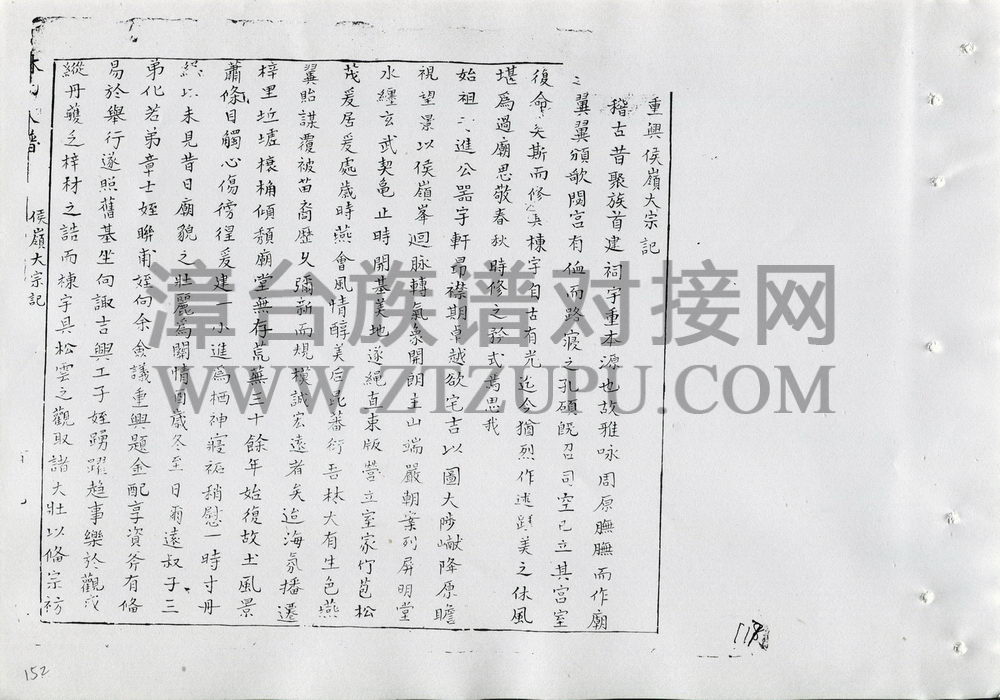 重興侯嶺大宗記
稽古昔聚族首建祠宇重本源也故雅咏周原膴膴而作廟
翼翼頌歌閟宮有侐而路寢之孔碩旣召司空已立其宮室
復命矢斯而修其棟宇自古有光迄今猶烈作述踐美之休風
堪為過廟思敬春秋時修之矜式焉思我
始祖三進公器宇軒昂襟期卓越欲宅吉以圖大陟巘降原瞻
視望景以侯嶺峯迴脉轉氣象開朗主山端嚴朝案列屏明堂
水纏玄武契龜止時開基美地遂繩直束版營立室家竹苞松
茂爰居爰處歲時燕會風情醇美后昆蕃衍吾林大有生色燕
翼貽謀覆被苗裔歷久彌新而規模誠宏遠者矣迨海氛播遷
梓里坵墟榱桷傾頹廟堂無存荒蕪三十餘年始復故土風景
蕭條目觸心傷徬徨爰建一小進為栖神寢祏稍慰一時寸丹
終以未見昔日廟貌之壯麗為關情酉歲冬至日爾遠叔子三
弟化若弟章士姪聯甫姪向余僉議重興題金配享資斧有俻
易於舉行遂照舊基坐向諏吉興工子姪踴躍趋事樂於觀成
縱丹雘乏梓材之誥而棟宇具松雲之觀取諸大壯以脩宗祊
侯嶺大宗記
118
152
漳台族谱对接网
WWW.ZTZUPU.COM